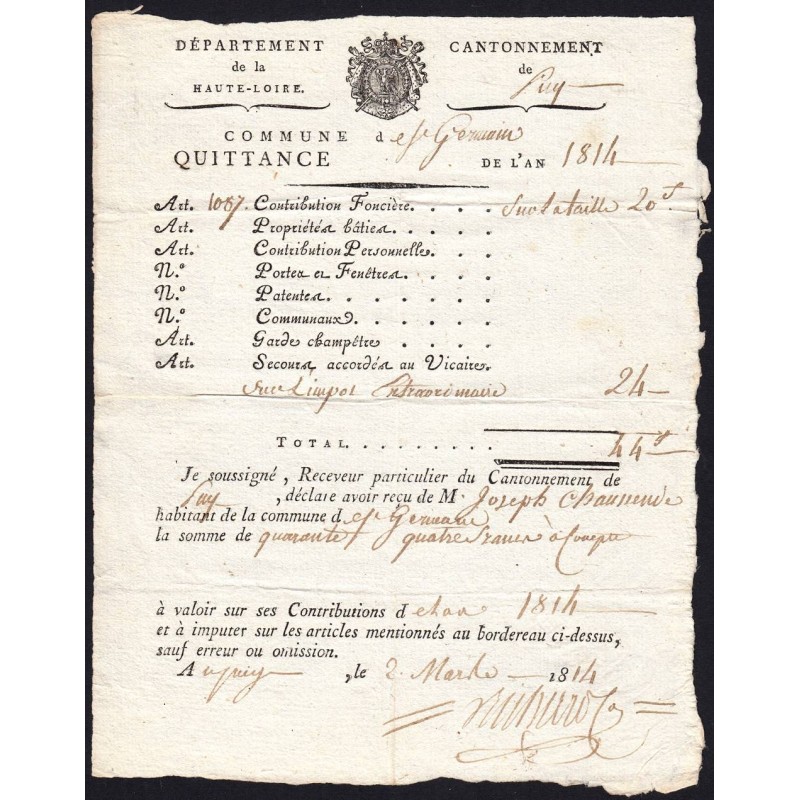 DÉPARTEMENT
de la
HAUTE-LOIRE.
CANTONNEMENT
de Puy
COMMUNE d e St Germain
QUITTANCE DE L'AN 1814
Art. 1087. Contribution Foncière. . . . Sur la taille 20f
Art. Propriétés bâties. . . . .
Art. Contribution Personnelle. . . .
N.º Portes et Fenêtres. . . . .
N.º Patentes. . . . . . .
N.º Communaux. . . . . .
Art. Garde champêtre . . . . .
Art. Secours accordés au Vicaire.
Sur L'impot Extraordinaire 24
TOTAL. . . . . . . . . 44f
Je soussigné, Receveur particulier du Cantonnement de
Puy, déclare avoir reçu de M. Joseph
habitant de la commune d e St Germain
la somme de quarante quatre francs à Compte
à valoir sur ses Contributions d e l'an 1814
et à imputer sur les articles mentionnés au bordereau ci-dessus,
sauf erreur ou omission.
A u puy, le 2. Mars 1814